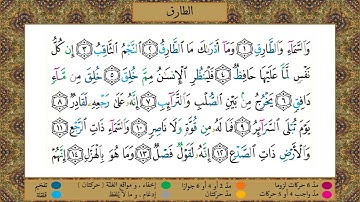 الطارق
وَالسَّمَاءِ وَالطَّارِقِ ۝١ وَمَا أَدْرَىٰكَ مَا الطَّارِقُ ۝٢ النَّجْمُ الثَّاقِبُ ۝٣ إِن كُلُّ
نَفْسٍ لَّمَّا عَلَيْهَا حَافِظٌ ۝٤ فَلْيَنظُرِ الْإِنسَٰنُ مِمَّ خُلِقَ ۝٥ خُلِقَ مِن مَّاءٍ
دَافِقٍ ۝٦ يَخْرُجُ مِنۢ بَيْنِ الصُّلْبِ وَالتَّرَائِبِ ۝٧ إِنَّهُ عَلَىٰ رَجْعِهِ لَقَادِرٌ ۝٨
يَوْمَ تُبْلَى السَّرَائِرُ ۝٩ فَمَا لَهُ مِن قُوَّةٍ وَلَا نَاصِرٍ ۝١٠ وَالسَّمَاءِ ذَاتِ الرَّجْعِ ۝١١
وَالْأَرْضِ ذَاتِ الصَّدْعِ ۝١٢ إِنَّهُ لَقَوْلٌ فَصْلٌ ۝١٣ وَمَا هُوَ بِالْهَزْلِ ۝١٤ إِنَّهُمْ
مدّ ٦ حركات لزوما مدّ ٢ أو ٤ أو ٦ جوازا إخفاء، ومواقع الغنّة (حركتان) تفخيم
مدّ واجب ٤ أو ٥ حركات مدّ حركتان إدغام، وما لا يُلفظ قلقلة